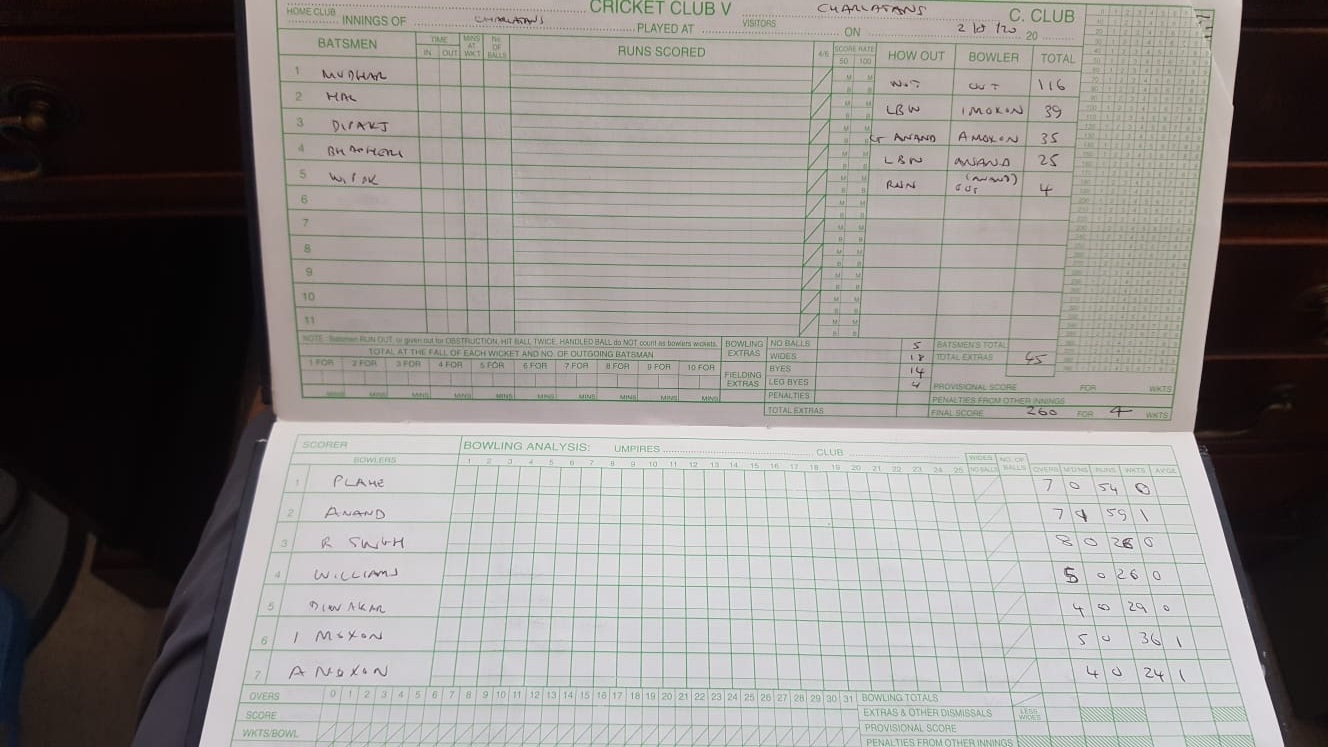 CRICKET CLUB V CHARLATANS C. CLUB
HOME CLUB VISITORS
INNINGS OF CHARLATANS PLAYED AT ON 20
BATSMEN TIME MINS AT WKT No. OF BALLS RUNS SCORED 4/6 SCORE RATE HOW OUT BOWLER TOTAL
IN OUT 50 100
1 MUDHAR NOT OUT 116
2 HAL LBW I MOXON 39
3 DIPAKJ CT ANAND A MOXON 35
4 LBW ANAND 25
5 RUN OUT (ANAND) 4
6
7
8
9
10
11
NOTE: Batsmen RUN OUT, or given out for OBSTRUCTION, HIT BALL TWICE, HANDLED BALL do NOT count as bowlers wickets.
TOTAL AT THE FALL OF EACH WICKET AND NO. OF OUTGOING BATSMAN
1 FOR 2 FOR 3 FOR 4 FOR 5 FOR 6 FOR 7 FOR 8 FOR 9 FOR 10 FOR
MINS MINS MINS MINS MINS MINS MINS MINS MINS
BOWLING EXTRAS NO BALLS 5 BATSMEN'S TOTAL
WIDES 18 TOTAL EXTRAS 45
FIELDING EXTRAS BYES 14
LEG BYES 4 PROVISIONAL SCORE FOR WKTS
PENALTIES PENALTIES FROM OTHER INNINGS
TOTAL EXTRAS FINAL SCORE 260 FOR 4 WKTS
SCORER BOWLING ANALYSIS: UMPIRES CLUB
BOWLERS 1 2 3 4 5 6 7 8 9 10 11 12 13 14 15 16 17 18 19 20 21 22 23 24 25 WIDES NO BALLS NO. OF BALLS OVERS MDNS RUNS WKTS AVGE
1 PLAHE 7 0 54 0
2 ANAND 7 59 1
3 R SINGH 8 0 0
4 WILLIAMS 5 0 26 0
5 DIWAKAR 4 0 29 0
6 I MOXON 5 0 36 1
7 A MOXON 4 0 24 1
OVERS 0 1 2 3 4 5 6 7 8 9 10 11 12 13 14 15 16 17 18 19 20 21 22 23 24 25 26 27 28 29 30 31 BOWLING TOTALS
SCORE EXTRAS & OTHER DISMISSALS LESS WIDES
WKTS/BOWL PROVISIONAL SCORE
PENALTIES FROM OTHER INNINGS